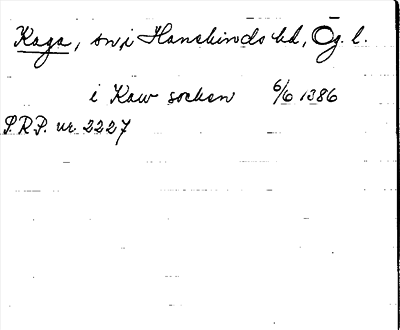 Kaga, sn, i Hanekinds hd, Ög. l.
i Kaw socken 6/6 1386
S.R.P. nr. 2227